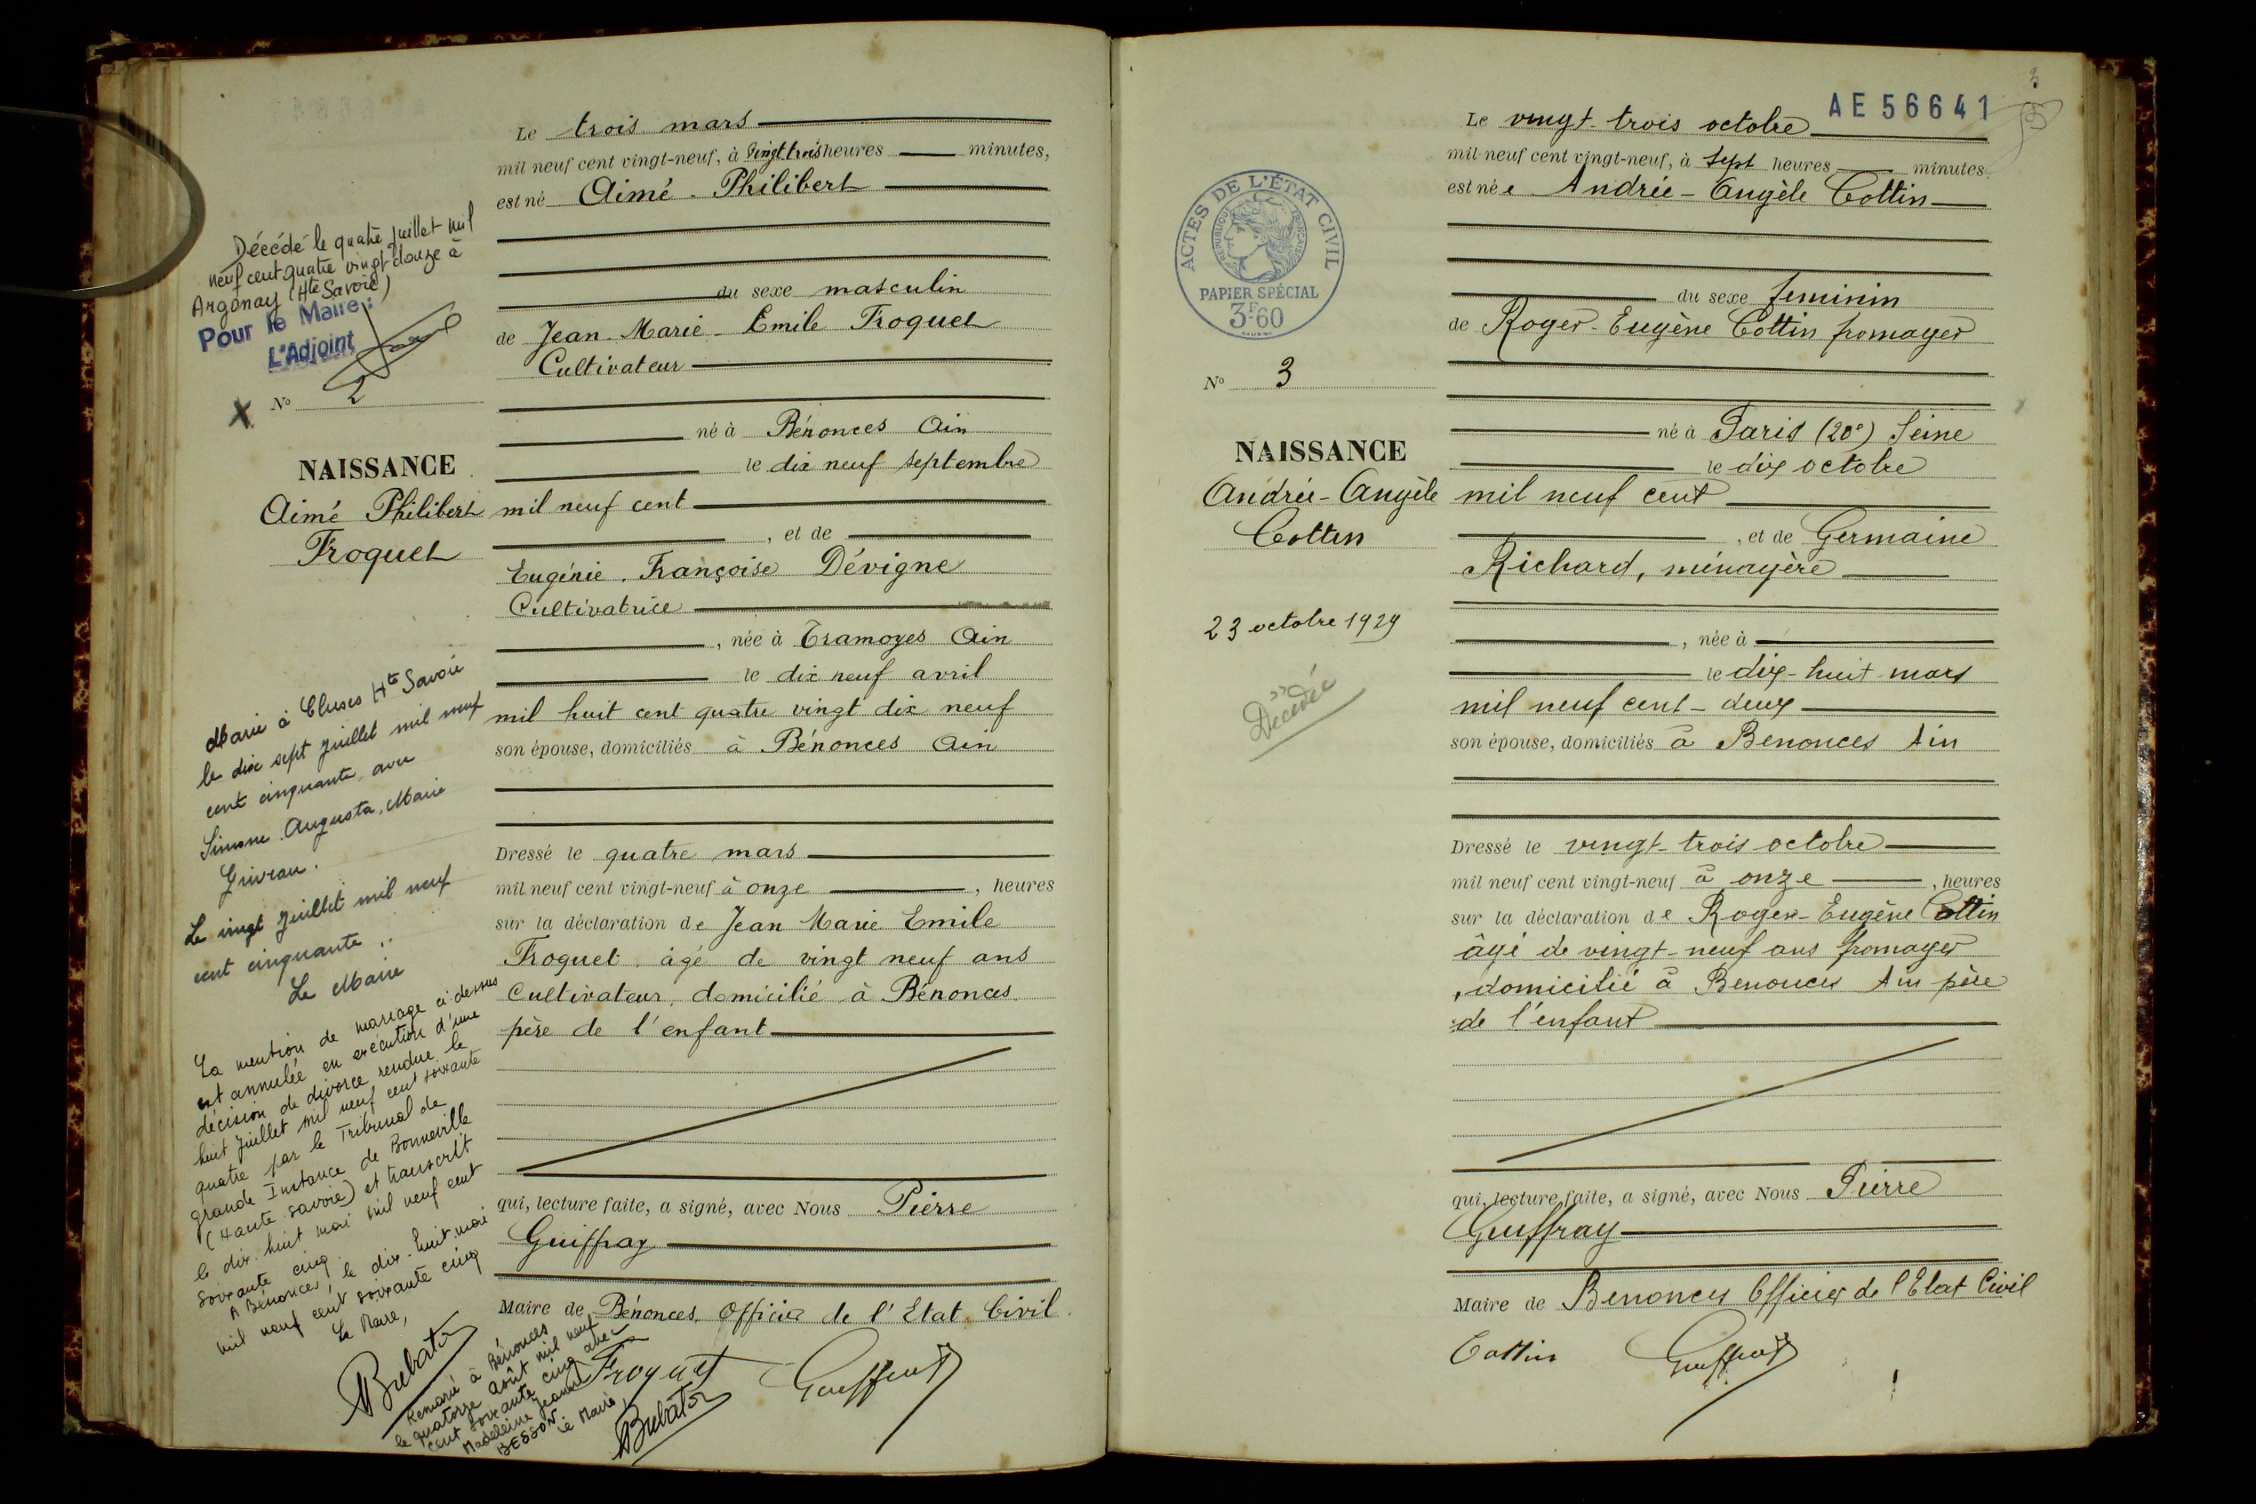 Le trois mars
mil neuf cent vingt-neuf, à vingt trois heures minutes,
est né Aimé. Philibert
du sexe masculin
de Jean. Marie. Emile Froquet
Cultivateur
né à Bénonces Ain
le dix neuf septembre
mil neuf cent
, et de
Eugénie. Françoise Dévigne
Cultivatrice
, née à Tramoyes Ain
le dix neuf avril
mil huit cent quatre vingt dix neuf
son épouse, domiciliés à Bénonces Ain
Dressé le quatre mars
mil neuf cent vingt-neuf à onze , heures
sur la déclaration de Jean Marie Emile
Froquet. âgé de vingt neuf ans
Cultivateur, domicilié à Bénonces.
père de l'enfant
qui, lecture faite, a signé, avec Nous Pierre
Guiffray
Maire de Bénonces, Officier de l'Etat Civil.
Froquet
Décédé le quatre juillet mil
neuf cent quatre vingt douze à
Argonay (Hte Savoie)
Pour le Maire:
L'Adjoint
X No 2
NAISSANCE
Aimé Philibert
Froquet
Marié à Cluses Hte Savoie
le dix sept juillet mil neuf
cent cinquante avec
Simone. Augusta, Marie
Le vingt juillet mil neuf
cent cinquante.
Le Maire
La mention de mariage ci dessus
est annulée en exécution d'une
décision de divorce rendue le
huit juillet mil neuf cent soixante
quatre par le Tribunal de
grande Instance de Bonneville
(Haute savoie) et transcrit
le dix huit mai mil neuf cent
soixante cinq.
A Bénonces, le dix-huit mai
mil neuf cent soixante cinq
Le Maire,
Remarié à Bénonces
le quatorze août mil neuf
cent soixante cinq avec
Madeleine Jeanne
BESSON
Le Maire,
AE 56641
3
Le vingt-trois octobre
mil neuf cent vingt-neuf, à sept heures minutes.
est née Andrée-Angèle Cottin
du sexe feminin
de Roger-Eugène Cottin fromager
né à Paris (20e) Seine
le dix octobre
mil neuf cent
, et de Germaine
Richard, ménagère
, née à
le dix-huit mars
mil neuf cent-deux
son épouse, domiciliés à Benonces Ain
Dressé le vingt-trois octobre
mil neuf cent vingt-neuf à onze , heures
sur la déclaration de Roger-Eugène Cottin
âgé de vingt-neuf ans fromager
, domicilié à Benonces Ain père
de l'enfant
qui, lecture faite, a signé, avec Nous Pierre
Guiffray
Maire de Benonces Officier de l'Etat Civil
Cottin
ACTES DE L'ÉTAT CIVIL
RÉPUBLIQUE FRANÇAISE
PAPIER SPÉCIAL
3F60
No 3
NAISSANCE
Andrée-Angèle
Cottin
23 octobre 1929
Décédée